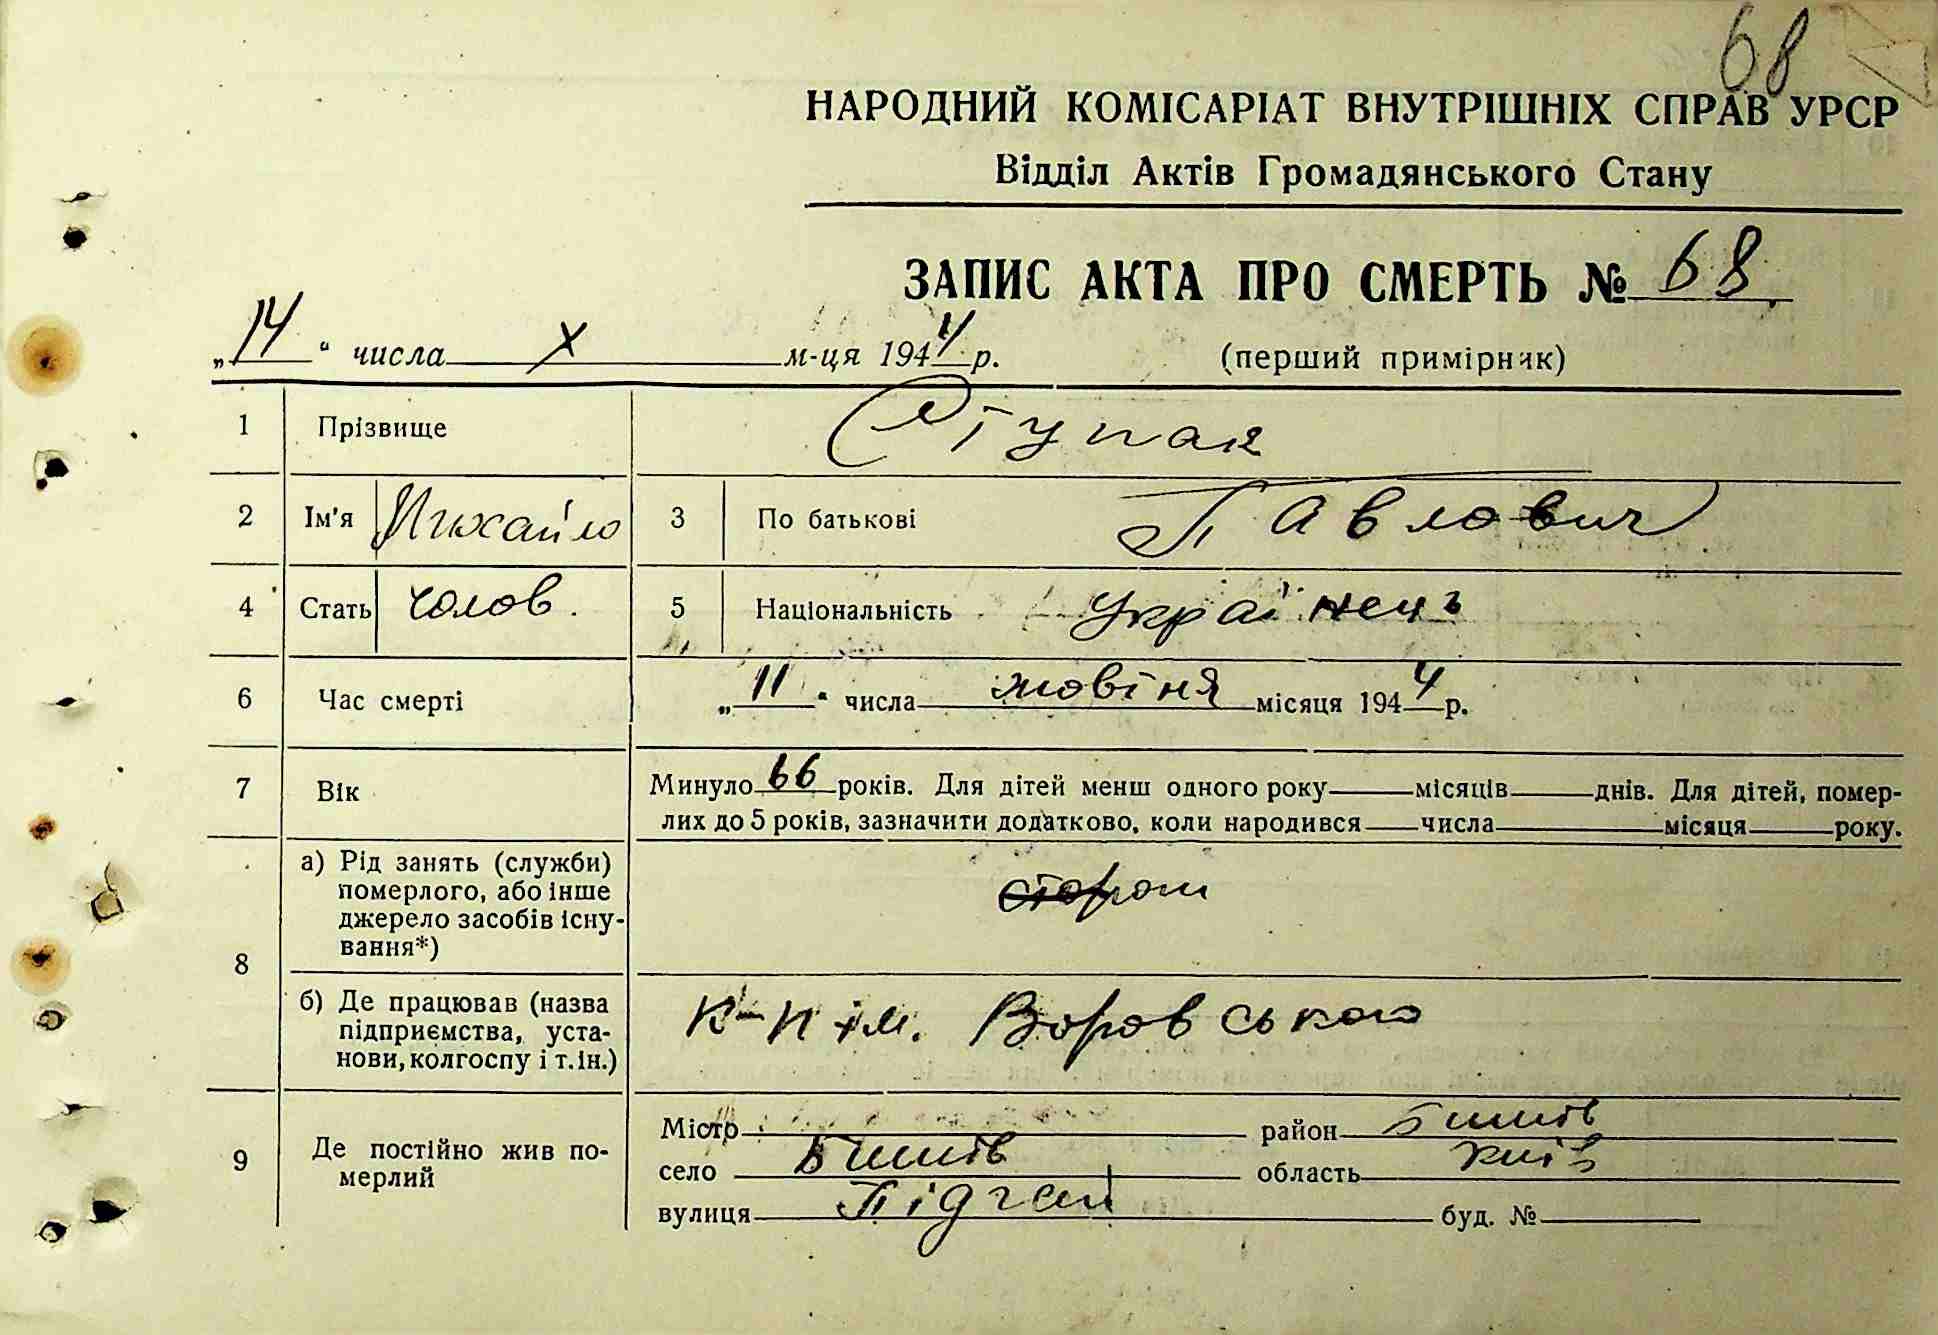 68
НАРОДНИЙ КОМІСАРІАТ ВНУТРІШНІХ СПРАВ УРСР
Відділ Актів Громадянського Стану
ЗАПИС АКТА ПРО СМЕРТЬ № 68
„14“ числа X м-ця 1944 р. (перший примірник)
1 Прізвище Ступак
2 Ім'я Михайло 3 По батькові Павлович
4 Стать чолов. 5 Національність Українець
6 Час смерті „11“ числа жовтня місяця 1944 р.
7 Вік Минуло 66 років. Для дітей менш одного року місяців днів. Для дітей, помер-
лих до 5 років, зазначити додатково, коли народився числа місяця року.
8 а) Рід занять (служби)
померлого, або інше
джерело засобів існу-
вання*)
б) Де працював (назва
підприємства, уста-
нови, колгоспу і т. ін.)
К-п ім. Воровського
9 Де постійно жив по-
мерлий
Місто район Бишів
село Бишів область Київ
вулиця буд. №